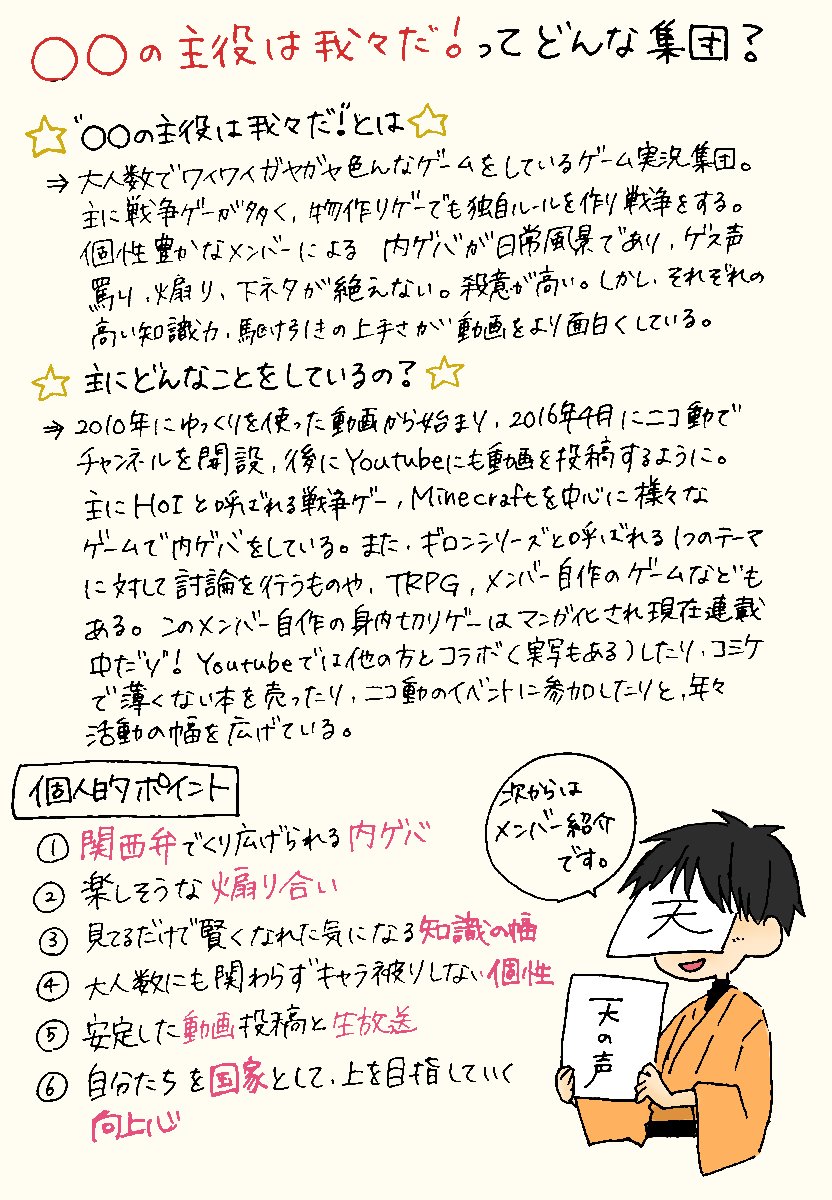 〇〇の主役は我々だ!ってどんな集団?
"〇〇の主役は我々だ!"とは
⇒ 大人数でワイワイガヤガヤ色んなゲームをしているゲーム実況集団。
主に戦争ゲーが多く、物作りゲーでも独自ルールを作り戦争をする。
個性豊かなメンバーによる 内ゲバが日常風景であり、ゲス声
罵り、煽り、下ネタが絶えない。殺意が高い。しかし、それぞれの
高い知識力、駆け引きの上手さが動画をより面白くしている。
主にどんなことをしているの?
⇒ 2010年にゆっくりを使った動画から始まり、2016年4月にニコ動で
チャンネルを開設、後にYoutubeにも動画を投稿するように。
主にHOIと呼ばれる戦争ゲー、Minecraftを中心に様々な
ゲームで内ゲバをしている。また、ギロンシリーズと呼ばれる1つのテーマ
に対して討論を行うものや、TRPG、メンバー自作のゲームなども
ある。このメンバー自作の身内切りゲーはマンガ化され現在連載
中だゾ!Youtubeでは他の方とコラボ(実写もある)したり、コミケ
で薄くない本を売ったり、ニコ動のイベントに参加したりと、年々
活動の幅を広げている。
個人的ポイント
① 関西弁でくり広げられる内ゲバ
② 楽しそうな煽り合い
③ 見てるだけで賢くなれた気になる知識の幅
④ 大人数にも関わらずキャラ被りしない個性
⑤ 安定した動画投稿と生放送
⑥ 自分たちを国家として、上を目指していく
向上心
次からは
メンバー紹介
です。
天
天の声